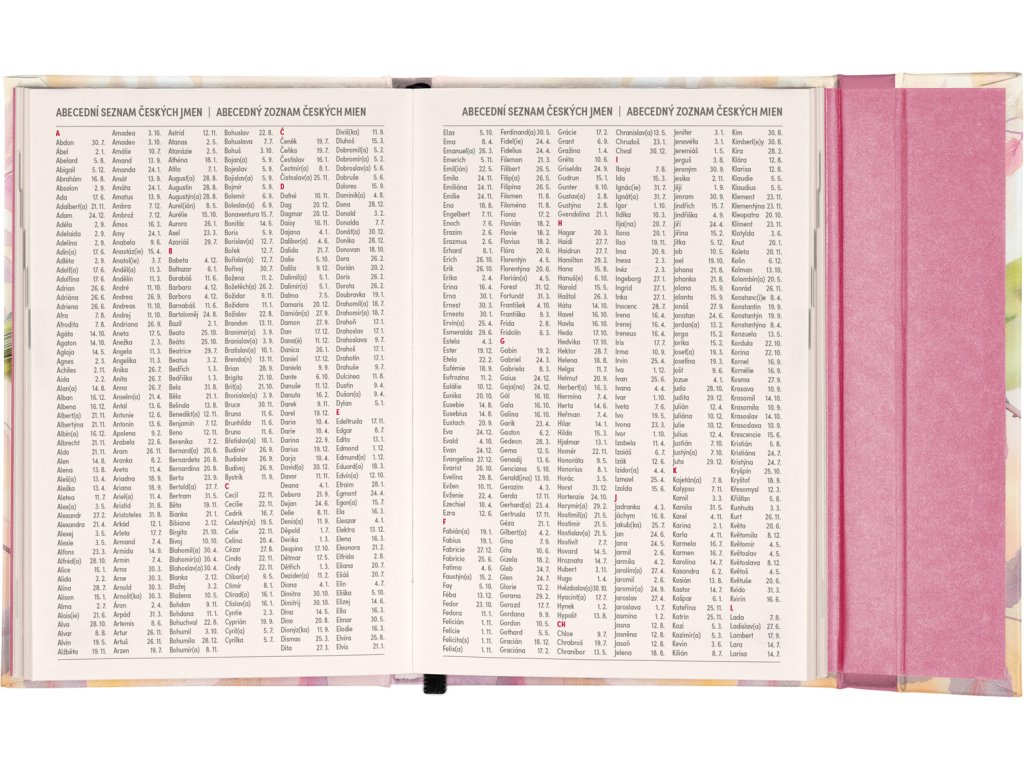 ABECEDNÍ SEZNAM ČESKÝCH JMEN | ABECEDNÝ ZOZNAM ČESKÝCH MIEN
A
Abdon 30. 7.
Ábel 2. 1.
Abelard 5. 8.
Abigail 5. 12.
Abrahám 16. 8.
Absolon 2. 9.
Ada 17. 6.
Adalbert(a) 21. 11.
Adam 24. 12.
Adéla 2. 9.
Adelaida 2. 9.
Adelína 2. 9.
Adin(a) 17. 6.
Adléta 2. 9.
Adolf(a) 17. 6.
Adolfína 17. 6.
Adrian 26. 6.
Adriána 26. 6.
Adriena 26. 6.
Afra 7. 8.
Afrodita 7. 8.
Agáta 14. 10.
Agaton 14. 10.
Aglaja 14. 5.
Agnes 2. 3.
Achiles 2. 11.
Aida 2. 2.
Alan(a) 14. 8.
Alban 16. 12.
Albena 16. 12.
Albert(a) 21. 11.
Albertýna 21. 11.
Albín(a) 16. 12.
Albrecht 21. 11.
Aldo 21. 11.
Alen 14. 8.
Alena 13. 8.
Aleš(a) 13. 4.
Aleška 13. 4.
Aletea 11. 7.
Alex(a) 3. 5.
Alexandr 27. 2.
Alexandra 21. 4.
Alexej 3. 5.
Alexie 3. 5.
Alfons 23. 3.
Alfréd(a) 28. 10.
Alice 15. 1.
Alida 2. 2.
Alina 28. 7.
Alison 15. 1.
Alma 2. 7.
Alois(ie) 21. 6.
Alva 28. 10.
Alvar 8. 8.
Alvin 19. 5.
Alžběta 19. 11.
Amadea 3. 10.
Amadeo 3. 10.
Amálie 10. 7.
Amand 13. 9.
Amanda 24. 1.
Amát 13. 9.
Amáta 24. 1.
Amatus 13. 9.
Ambra 7. 12.
Ambrož 7. 12.
Ámos 16. 3.
Amy 24. 1.
Anabela 9. 6.
Anastáz(ie) 15. 4.
Anatol(ie) 3. 7.
Anděl(a) 11. 3.
Andělín 11. 3.
André 11. 10.
Andrea 26. 9.
Andreas 11. 10.
Andrej 11. 10.
Andriana 26. 9.
Aneta 17. 5.
Anežka 2. 3.
Angela 11. 3.
Angelika 11. 3.
Anika 26. 7.
Anita 26. 7.
Anna 26. 7.
Anselm(a) 21. 4.
Antal 13. 6.
Antonie 12. 6.
Antonín 13. 6.
Apolena 9. 2.
Arabela 22. 6.
Aram 26. 11.
Aranka 8. 2.
Areta 11. 4.
Ariadna 18. 9.
Ariana 18. 9.
Ariel(a) 11. 4.
Aristid 31. 8.
Aristoteles 31. 8.
Arkád 12. 1.
Arleta 17. 7.
Armand 7. 4.
Armida 14. 9.
Armin 7. 4.
Arna 30. 3.
Arne 30. 3.
Arnold 30. 3.
Arnošt(ka) 30. 3.
Áron 2. 4.
Arpád 31. 3.
Artemis 8. 6.
Artur 26. 11.
Artuš 26. 11.
Arzen 19. 7.
Astrid 12. 11.
Atanas 2. 5.
Atanázie 2. 5.
Athéna 18. 1.
Atila 7. 1.
August(a) 28. 8.
Augustin 28. 8.
Augustýn(a) 28. 8.
Aurel(ián) 8. 5.
Aurélie 15. 10.
Aurora 26. 1.
Axel 23. 3.
Azariáš 29. 7.
B
Babeta 4. 12.
Baltazar 6. 1.
Barabáš 11. 6.
Barbara 4. 12.
Barbora 4. 12.
Barnabáš 11. 6.
Bartoloměj 24. 8.
Bazil 2. 1.
Beata 25. 10.
Beáta 25. 10.
Beatrice 29. 7.
Beatus 3. 2.
Bedřich 1. 3.
Bedřiška 1. 3.
Bela 31. 8.
Běla 21. 1.
Belinda 13. 8.
Benedikt(a) 12. 11.
Benjamín 7. 12.
Beno 12. 11.
Berenika 7. 2.
Bernard(a) 20. 8.
Bernardeta 20. 8.
Bernardina 20. 8.
Berta 23. 9.
Bertold(a) 27. 7.
Bertram 31. 5.
Běta 19. 11.
Bianka 21. 1.
Bibiana 2. 12.
Birgita 21. 10.
Bivoj 10. 10.
Blahomil(a) 30. 4.
Blahomír(a) 30. 4.
Blahoslav(a) 30. 4.
Blanka 2. 12.
Blažej 3. 2.
Blažena 10. 5.
Bohdan 9. 11.
Bohdana 11. 1.
Bohuchval 22. 8.
Bohumil 3. 10.
Bohumila 28. 12.
Bohumír(a) 8. 11.
Bohuslav 22. 8.
Bohuslava 7. 7.
Bohuš 3. 10.
Bojan(a) 5. 9.
Bojeslav 5. 9.
Bojislav(a) 5. 9.
Bojmír 5. 9.
Bolemír 6. 9.
Boleslav(a) 6. 9.
Bonaventura 15. 7.
Bonifác 14. 5.
Boris 5. 9.
Borislav(a) 12. 7.
Bořek 12. 7.
Bořislav(a) 12. 7.
Bořivoj 30. 7.
Božena 11. 2.
Božetěch(a) 26. 2.
Božidar 9. 11.
Božidara 11. 1.
Božislav 22. 8.
Brandon 13. 11.
Branimír(a) 3. 9.
Branislav(a) 3. 9.
Bratislav(a) 10. 1.
Brenda(n) 13. 11.
Brian 28. 9.
Brigita 21. 10.
Brit(a) 21. 10.
Bronislav(a) 3. 9.
Bruce 30. 11.
Bruna 11. 6.
Brunhilda 11. 6.
Bruno 11. 6.
Břetislav(a) 10. 1.
Budimír 26. 9.
Budislav 26. 9.
Budivoj 26. 9.
Bystrík 11. 9.
C
Cecil 22. 11.
Cecílie 22. 11.
Cedrik 16. 7.
Celestýn(a) 19. 5.
Celie 22. 11.
Celina 20. 4.
Cézar 27. 8.
Cinda 22. 11.
Cindy 22. 11.
Ctibor(a) 9. 5.
Ctimír 8. 1.
Ctirad(a) 16. 1.
Ctislav(a) 16. 1.
Cyntie 2. 3.
Cyprián 19. 9.
Cyril(a) 5. 7.
Cyrilka 5. 7.
Č
Čeněk 19. 7.
Čeňka 19. 7.
Čestislav 16. 1.
Čestmír(a) 8. 1.
Čistoslav(a) 25. 11.
D
Dafné 10. 11.
Dag 20. 12.
Dagmar 20. 12.
Daisy 16. 11.
Dajana 4. 1.
Dalibor(a) 4. 6.
Dalida 21. 7.
Dalie 5. 10.
Dalila 9. 12.
Dalimil(a) 5. 1.
Dalimír(a) 5. 1.
Dalma 7. 5.
Damaris 20. 12.
Damián(a) 27. 9.
Damon 27. 9.
Dan 17. 12.
Dana(é) 11. 12.
Danica 26. 1.
Daniel 17. 12.
Daniela 9. 9.
Dante 6. 10.
Danuše 11. 12.
Danuta 16. 2.
Darek 9. 11.
Darel 19. 12.
Daria 10. 4.
Darie 10. 4.
Darina 22. 9.
Darius 19. 12.
Darja 10. 4.
David(a) 30. 12.
Davor 11. 1.
Deana 4. 1.
Debora 21. 9.
Dejan 24. 6.
Delie 8. 11.
Denis(a) 11. 9.
Děpold 1. 7.
Derika 1. 3.
Despina 17. 10.
Dětmar 17. 5.
Dětřich 1. 3.
Dezider(a) 11. 2.
Diana 4. 1.
Dimitra 30. 10.
Dimitrij 30. 10.
Dina 14. 5.
Dino 20. 8.
Dionýz(ka) 11. 9.
Dismas 25. 3.
Dita 27. 3.
Diviš(ka) 11. 9.
Dluhoš 15. 3.
Dobromil(a) 5. 2.
Dobromír(a) 5. 2.
Dobroslav(a) 5. 6.
Dobruše 5. 6.
Dolores 15. 9.
Dominik(a) 4. 8.
Dona 28. 12.
Donald 3. 2.
Donalda 7. 7.
Donát(a) 30. 12.
Donika 28. 12.
Donovan 18. 10.
Dora 26. 2.
Dorián 20. 2.
Doris 26. 2.
Dorota 26. 2.
Doubravka 19. 1.
Drahomil(a) 18. 7.
Drahomír(a) 18. 7.
Drahoň 17. 1.
Drahoslav 17. 1.
Drahoslava 9. 7.
Drahoš 17. 1.
Drahotín 17. 1.
Drahuše 9. 7.
Dulcinea 11. 8.
Dustin 9. 4.
Dušan(a) 9. 4.
Dylan 5. 1.
E
Edeltruda 17. 11.
Edgar 8. 7.
Edita 13. 1.
Edmond 1. 12.
Edmund(a) 1. 12.
Eduard(a) 18. 3.
Edvín(a) 12. 10.
Efraim 28. 1.
Egmont 24. 4.
Egon(a) 15. 7.
Ela 16. 3.
Eleazar 4. 1.
Elektra 13. 12.
Elena 16. 3.
Eleonora 21. 2.
Elfrída 2. 8.
Eliana 20. 7.
Eliáš 20. 7.
Elin 4. 7.
Eliška 5. 10.
Elizej 14. 6.
Ella 16. 3.
Elmar 30. 5.
Elodie 16. 3.
Elvíra 25. 8.
Elvis 21. 1.
ABECEDNÍ SEZNAM ČESKÝCH JMEN | ABECEDNÝ ZOZNAM ČESKÝCH MIEN
Elza 5. 10.
Ema 8. 4.
Emanuel(a) 26. 3.
Emerich 5. 11.
Emil(ián) 22. 5.
Emila 24. 11.
Emiliána 24. 11.
Emilie 24. 11.
Ena 18. 8.
Engelbert 7. 11.
Enoch 7. 6.
Erazim 2. 6.
Erazmus 2. 6.
Erhard 8. 1.
Erich 26. 10.
Erik 26. 10.
Erika 2. 4.
Erina 16. 4.
Erna 30. 1.
Ernest 30. 3.
Ernesta 30. 1.
Ervín(a) 25. 4.
Esmeralda 29. 6.
Estela 4. 3.
Ester 19. 12.
Etela 22. 2.
Eufémie 18. 9.
Eufrozína 11. 2.
Eulálie 10. 12.
Eunika 20. 10.
Eusebie 14. 8.
Eusebius 14. 8.
Eustach 20. 9.
Eva 24. 12.
Evald 4. 10.
Evan 24. 12.
Evangelína 27. 12.
Evarist 26. 10.
Evelína 29. 8.
Evžen 10. 11.
Evženie 22. 4.
Ezechiel 10. 4.
Ezra 12. 6.
F
Fabián(a) 19. 1.
Fabius 19. 1.
Fabricie 27. 12.
Fabricio 25. 6.
Fatima 4. 6.
Faustýn(a) 15. 2.
Fay 5. 10.
Féba 13. 12.
Fedor 23. 10.
Fedora 11. 1.
Felicián 1. 11.
Felicie 1. 11.
Felicita(s) 1. 11.
Felix(a) 1. 11.
Ferdinand(a) 30. 5.
Fidel(ie) 24. 4.
Fidelius 24. 4.
Filemon 21. 3.
Filibert 26. 5.
Filip(a) 26. 5.
Filipína 26. 5.
Filomen 11. 8.
Filoména 11. 8.
Fiona 17. 2.
Flavián 18. 2.
Flavie 18. 2.
Flavius 18. 2.
Flóra 20. 6.
Florentýn 4. 5.
Florentýna 20. 6.
Florián(a) 4. 5.
Forest 31. 12.
Fortunát 31. 3.
František 4. 10.
Františka 9. 3.
Frída 2. 8.
Fridolín 6. 3.
G
Gabin 19. 2.
Gabriel 24. 3.
Gabriela 8. 3.
Gaius 24. 12.
Gaja(na) 24. 12.
Gál 16. 10.
Gala 16. 10.
Galina 16. 10.
Garik 23. 4.
Gaston 6. 2.
Gedeon 28. 3.
Gema 12. 5.
Genadij 13. 6.
Genciana 5. 10.
Gerald(ina) 13. 10.
Gerazim 4. 3.
Gerda 17. 11.
Gerhard(a) 23. 4.
Gertruda 17. 11.
Géza 21. 1.
Gilbert(a) 4. 2.
Gina 7. 9.
Gita 10. 6.
Gizela 18. 2.
Gleb 24. 7.
Glen 24. 7.
Glorie 12. 2.
Gorana 29. 2.
Gorazd 17. 7.
Gordana 9. 9.
Gordon 10. 5.
Gothard 5. 5.
Gracián 18. 12.
Graciána 17. 2.
Grácie 17. 2.
Grant 6. 9.
Gražina 1. 4.
Gréta 10. 6.
Griselda 24. 9.
Gudrun 15. 1.
Gunter 9. 10.
Gustav(a) 2. 8.
Gustýna 2. 8.
Gvendolína 21. 1.
H
Hagar 20. 3.
Haidi 27. 7.
Haidrun 27. 7.
Hamilton 29. 2.
Hana 15. 8.
Hanuš(e) 6. 10.
Harold 15. 5.
Haštal 26. 3.
Háta 14. 10.
Havel 16. 10.
Havla 16. 10.
Heda 17. 10.
Hedvika 17. 10.
Hektor 28. 7.
Helena 18. 8.
Helga 11. 7.
Helmut 20. 9.
Herbert(a) 16. 3.
Hermína 7. 4.
Herta 14. 6.
Heřman 7. 4.
Hilar 14. 1.
Hilda 15. 3.
Hjalmar 13. 1.
Homér 22. 11.
Honorata 9. 5.
Honorius 8. 1.
Horác 3. 5.
Horst 31. 12.
Hortenzie 24. 10.
Horymír(a) 29. 2.
Hostimil(a) 21. 5.
Hostimír 21. 5.
Hostislav(a) 21. 5.
Hostivít 7. 7.
Hovard 14. 5.
Hroznata 14. 7.
Hubert 3. 11.
Hugo 1. 4.
Hvězdoslav(a) 30. 10.
Hyacint(a) 17. 7.
Hynek 1. 2.
Hypolit 13. 8.
CH
Chloe 9. 7.
Chrabroš 19. 7.
Chranibor 13. 5.
Chranislav(a) 13. 5.
Chrudoš 23. 1.
Chval 30. 12.
I
Iboja 7. 8.
Ida 15. 3.
Ignác(ie) 31. 7.
Ignát(a) 31. 7.
Igor 1. 10.
Ildika 10. 3.
Ilja(na) 20. 7.
Ilona 20. 1.
Ilsa 19. 11.
Ima 20. 9.
Inesa 2. 3.
Inéz 2. 3.
Ingeborg 27. 1.
Ingrid 27. 1.
Inka 27. 1.
Inocenc 28. 7.
Irena 16. 4.
Irenej 16. 4.
Ireneus 16. 4.
Iris 17. 7.
Irma 10. 9.
Irvin 25. 4.
Iva 1. 12.
Ivan 25. 6.
Ivana 4. 4.
Ivar 1. 10.
Iveta 7. 6.
Ivo 19. 5.
Ivona 23. 3.
Ivor 1. 10.
Izabela 11. 4.
Izaiáš 6. 7.
Izák 12. 6.
Izidor(a) 4. 4.
Izmael 25. 4.
Izolda 15. 6.
J
Jadranka 4. 3.
Jáchym 16. 8.
Jakub(ka) 25. 7.
Jan 24. 6.
Jana 24. 5.
Jarmil 2. 6.
Jarmila 4. 2.
Jarolím(a) 27. 4.
Jaromil 2. 6.
Jaromír(a) 24. 9.
Jaroslav 27. 4.
Jaroslava 1. 7.
Jasmína 1. 2.
Jasna 12. 8.
Jasněna 12. 8.
Jasoň 12. 8.
Jelena 18. 8.
Jenifer 3. 1.
Jenovéfa 3. 1.
Jeremiáš 1. 5.
Jerguš 3. 8.
Jeroným 30. 9.
Jesika 2. 11.
Jiljí 1. 9.
Jimram 30. 9.
Jindřich 15. 7.
Jindřiška 4. 9.
Jiří 24. 4.
Jiřina 15. 2.
Jitka 5. 12.
Job 10. 5.
Joel 19. 10.
Johana 21. 8.
Johanka 21. 8.
Jolana 15. 9.
Jolanta 15. 9.
Jonáš 27. 9.
Jonatan 24. 6.
Jordan(a) 13. 2.
Jorga 15. 2.
Jorika 15. 2.
Josef(a) 19. 3.
Josefína 19. 3.
Jošt 9. 6.
Jozue 4. 1.
Juda 28. 10.
Judita 29. 12.
Julián 12. 4.
Juliána 10. 12.
Julie 10. 12.
Julius 12. 4.
Justián 7. 10.
Justýn(a) 7. 10.
Juta 29. 12.
K
Kajetán(a) 7. 8.
Kalypso 7. 11.
Kamil 3. 3.
Kamila 31. 5.
Karel 4. 11.
Karina 2. 1.
Karla 4. 11.
Karmela 16. 7.
Karmen 16. 7.
Karolína 14. 7.
Kasandra 6. 2.
Kasián 13. 8.
Kastor 14. 7.
Kašpar 6. 1.
Kateřina 25. 11.
Katrin 25. 11.
Kazi 5. 3.
Kazimír(a) 5. 3.
Kevin 3. 6.
Kilián 8. 7.
Kim 30. 8.
Kimberl(e)y 30. 8.
Kira 28. 2.
Klára 12. 8.
Klarisa 12. 8.
Klaudie 5. 5.
Klaudius 5. 5.
Klement 23. 11.
Klementýna 23. 11.
Kleopatra 20. 10.
Kliment 23. 11.
Klotylda 3. 6.
Knut 20. 1.
Koleta 20. 11.
Kolin 6. 12.
Kolman 13. 10.
Kolombín(a) 20. 5.
Konrád 26. 11.
Konstanc(i)e 8. 4.
Konstantin 19. 9.
Konstantýn 19. 9.
Konstantýna 8. 4.
Konzuela 13. 5.
Kordula 22. 10.
Korina 22. 10.
Kornel 16. 9.
Kornélie 16. 9.
Kosma 27. 9.
Krasava 10. 9.
Krasomil 14. 10.
Krasomila 10. 9.
Kraslav 14. 10.
Krasoslava 10. 9.
Krescencie 15. 6.
Kristián 5. 8.
Kristiána 24. 7.
Kristýna 24. 7.
Kryšpín 25. 10.
Kryštof 18. 9.
Křesomysl 12. 3.
Křišťan 5. 8.
Kunhuta 3. 3.
Kurt 26. 11.
Květa 20. 6.
Květomila 8. 12.
Květomír 4. 5.
Květoslav 4. 5.
Květoslava 8. 12.
Květoš 4. 5.
Květuše 20. 6.
Kvido 31. 3.
Kvirin 16. 6.
L
Lada 7. 8.
Ladislav(a) 27. 6.
Lambert 17. 9.
Lara 14. 7.
Larisa 14. 7.